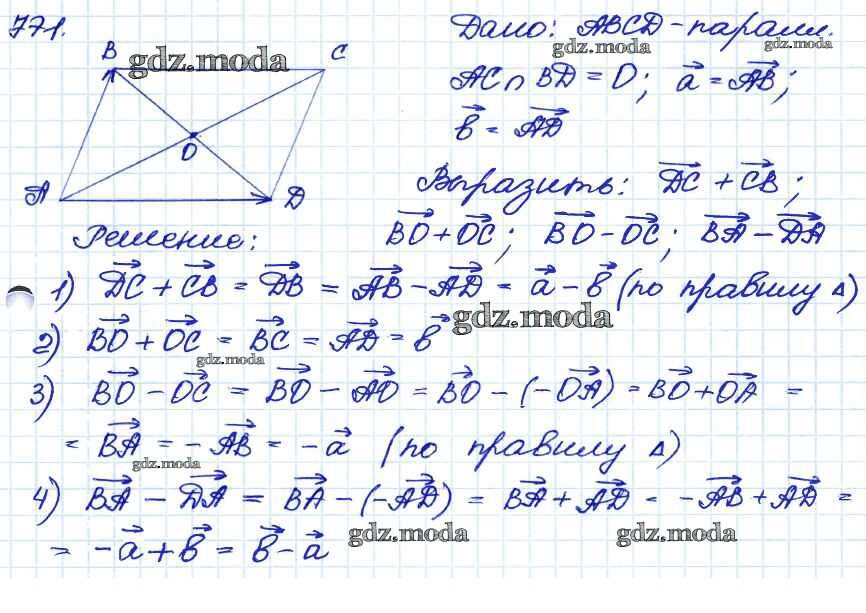 771.
Дано: ABCD - паралл.
gdz.moda
gdz.moda
gdz.moda
B
C
O
A
D
AC ∩ BD = O; a⃗ = AB⃗;
b⃗ = AD⃗
Выразить: DC⃗ + CB⃗;
BO⃗ + OC⃗; BO⃗ - OC⃗; BA⃗ - DA⃗
Решение:
1) DC⃗ + CB⃗ = DB⃗ = AB⃗ - AD⃗ = a⃗ - b⃗ (по правилу Δ)
gdz.moda
2) BO⃗ + OC⃗ = BC⃗ = AD⃗ = b⃗
gdz.moda
3) BO⃗ - OC⃗ = BO⃗ - AO⃗ = BO⃗ - (-OA⃗) = BO⃗ + OA⃗ =
= BA⃗ = - AB⃗ = - a⃗ (по правилу Δ)
gdz.moda
4) BA⃗ - DA⃗ = BA⃗ - (-AD⃗) = BA⃗ + AD⃗ = - AB⃗ + AD⃗ =
= - a⃗ + b⃗ = b⃗ - a⃗
gdz.moda
gdz.moda